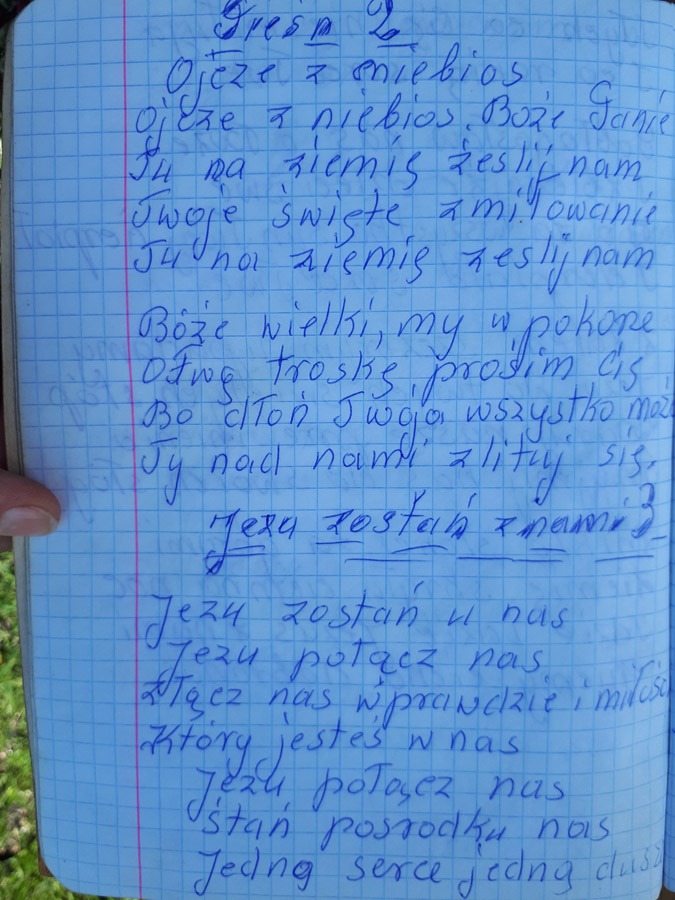 Pieśń 2
Ojcze z niebios
Ojcze z niebios, Boże Panie
Tu na ziemię ześlij nam
Twoje święte zmiłowanie
Tu na ziemię ześlij nam
Boże wielki, my w pokorze
O Twą troskę prosim cię
Bo dłoń Twoja wszystko może
Ty nad nami zlituj się.
Jezu zostań z nami 3
Jezu zostań u nas
Jezu połącz nas
złącz nas w prawdzie i miłości
Który jesteś w nas
Jezu połącz nas
stań posrodku nas
Jedną serce jedną dusz